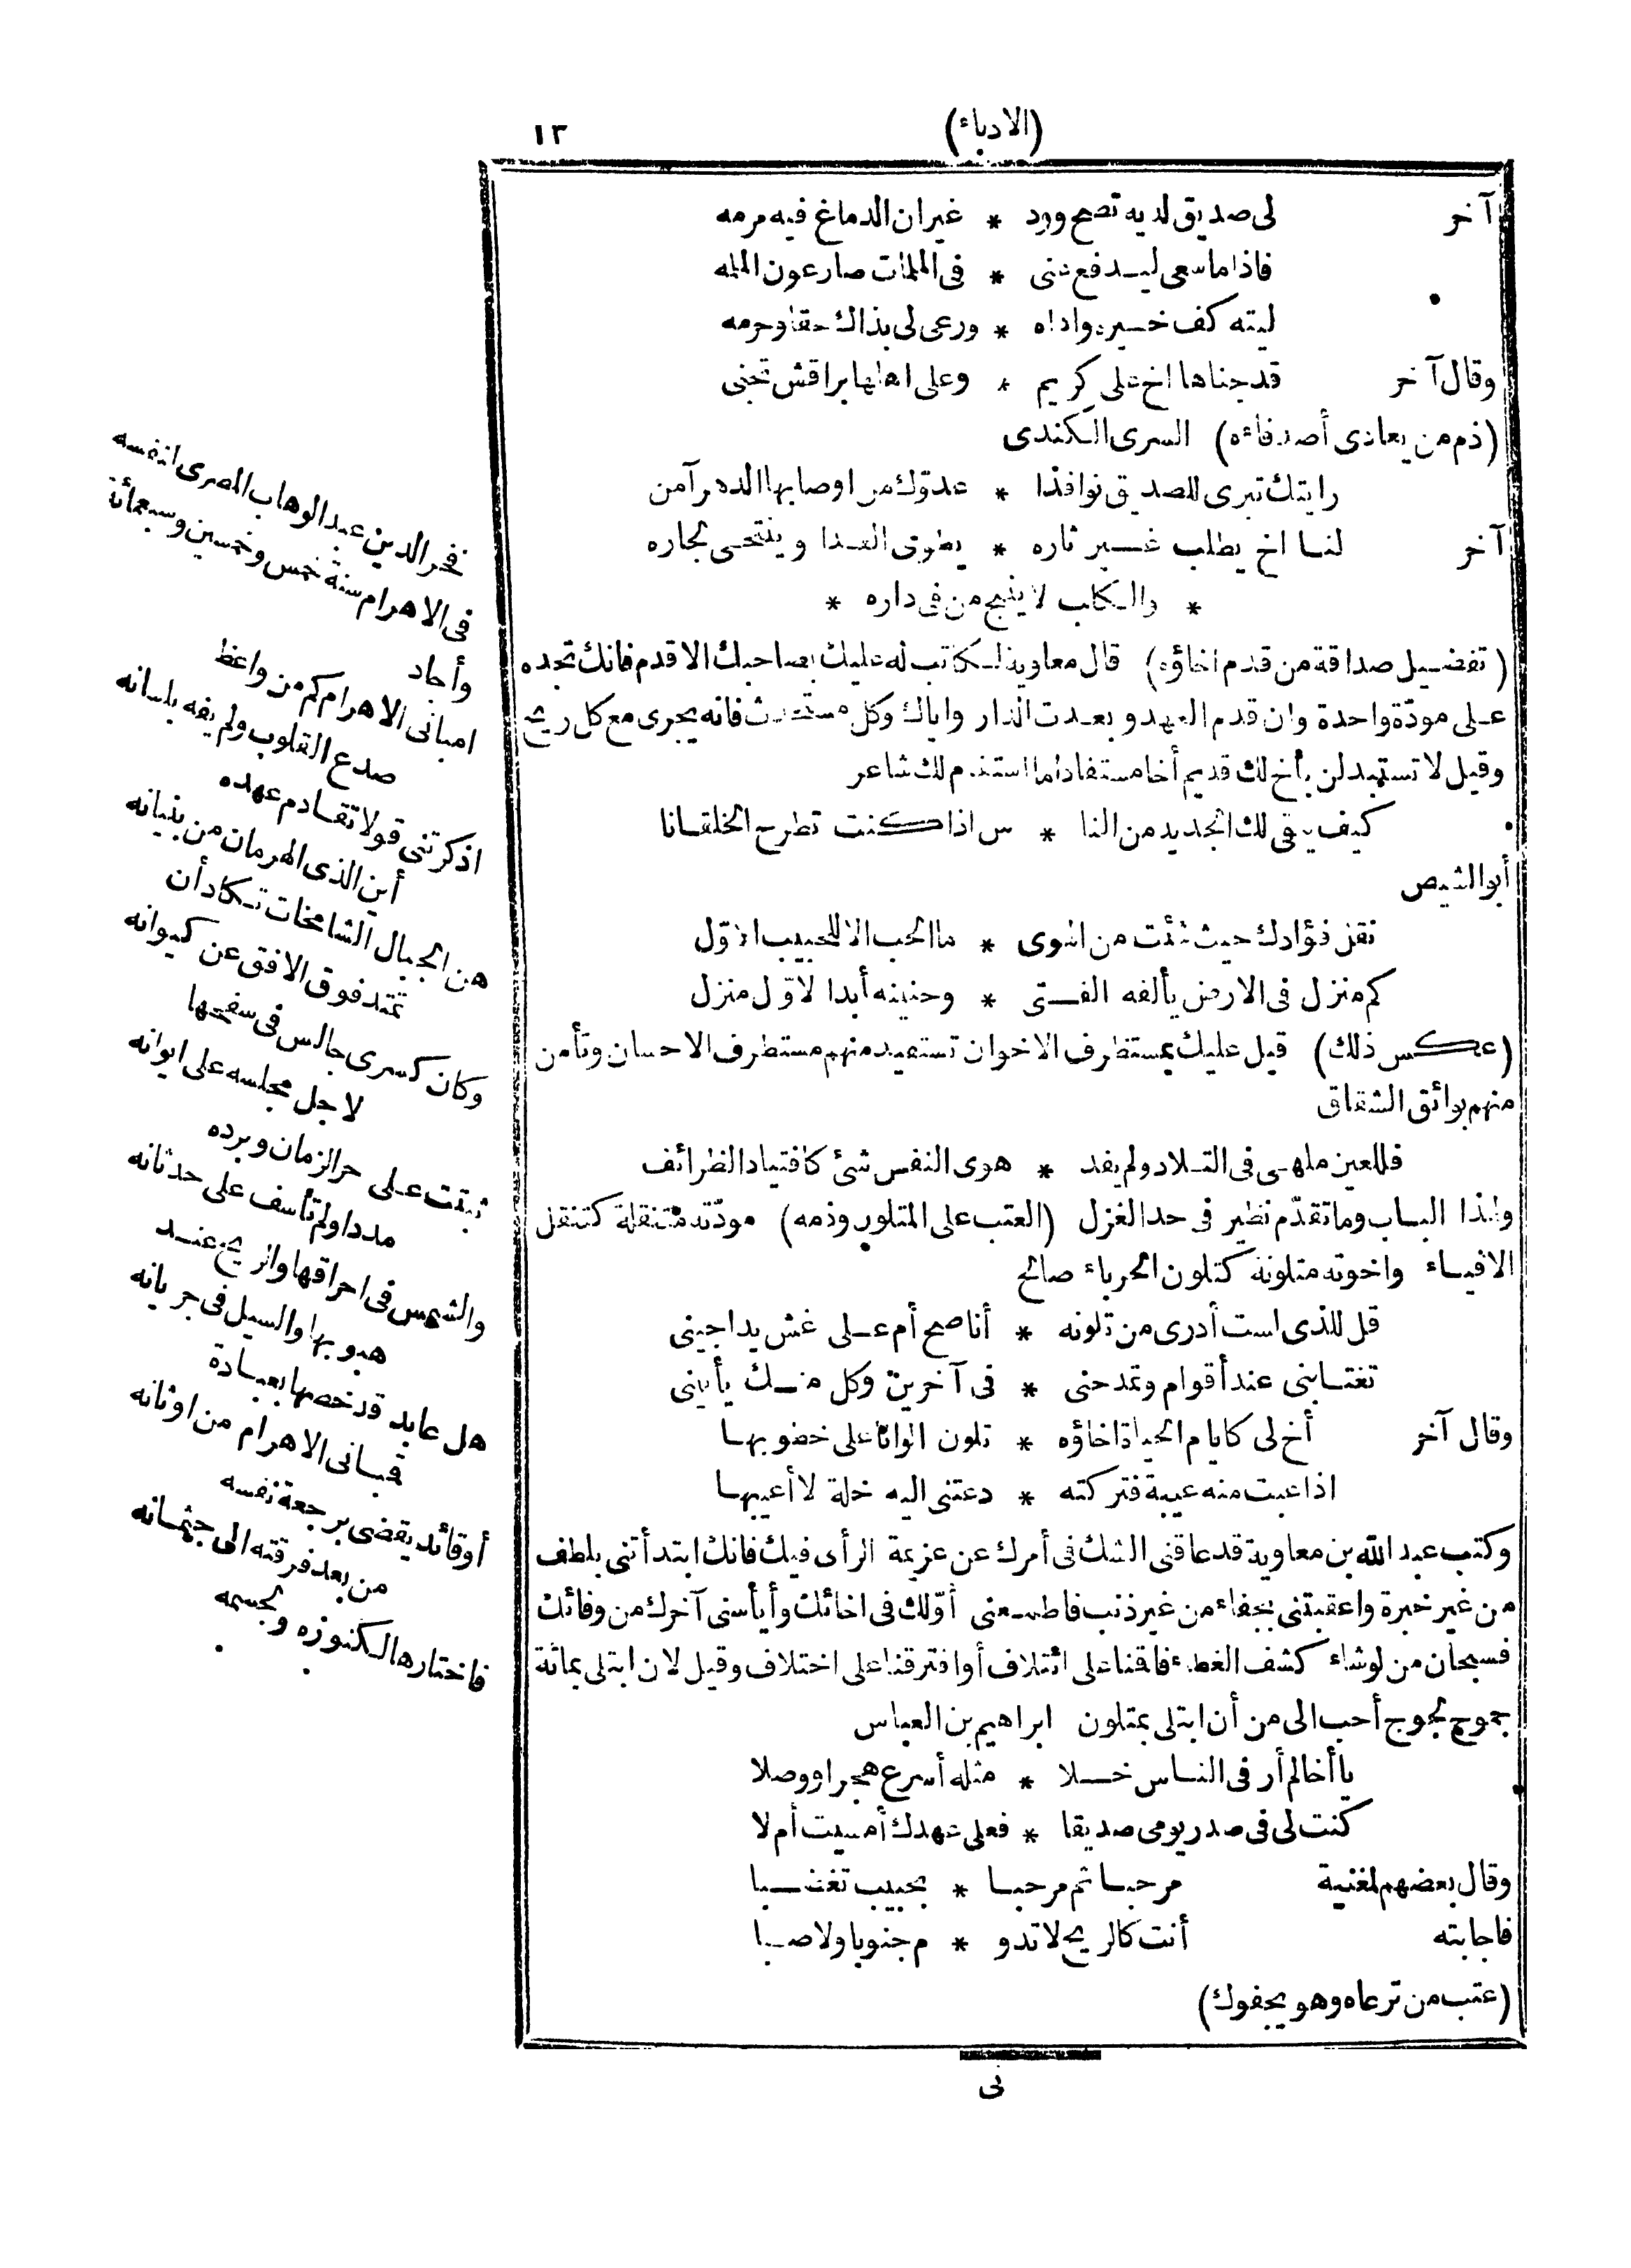 (الادباء)
١٣
آخر لى صديق لديه نصح وود * غيران الدماغ فيه مرمه
فاذا ما سعى ليدفع عنى * فى الملمات صار عون الملمه
ليته كف خيره واداه * ورعى لى بذاك حقا وحرمه
وقال آخر قد جناها اخ على كريم * وعلى اهلها براقش تجنى
(ذم من يعادى أصدقاءه) السرى الكندى
رايتك تبرى للصديق نوافذا * عدوّك من اوصابها الدهر آمن
آخر لنا اخ يطلب غير ثاره * يطوى العدا وينتحى لجاره
* والكلب لا ينبح من فى داره *
(تفضيل صداقة من قدم اخاؤه) قال معاوية لكاتب له عليك بصاحبك الاقدم فانك تجده
على مودّة واحدة وان قدم العهد وبعدت الدار واياك وكل مستحدث فانه يجرى مع كل ريح
وقيل لا تستبدلن بأخ لك قديم أخا مستفادا ما استقدم لك شاعر
كيف يبقى لك الجديد من النا * س اذا كنت تطرح الخلقانا
أبو الشيص
نقل فؤادك حيث شئت من الهوى * ما الحب الا للحبيب الاوّل
كم منزل فى الارض يألفه الفتى * وحنينه أبدا لاوّل منزل
(عكس ذلك) قيل عليك بمستظرف الاخوان تستفيد منهم مستطرف الاحسان وتأمن
منهم بوائق الشقاق
فللعين ملهى فى التلاد ولم يقد * هوى النفس شئ كاقتياد الظرائف
ولهذا الباب وما تقدّم نظير فى حد الغزل (العتب على المتلون وذمه) مودّته متنقلة كتنقل
الافياء واخوته متلونة كتلون الحرباء صالح
قل للذى لست أدرى من تلونه * أناصح أم على غش يداجينى
تغتابنى عند أقوام وتمدحنى * فى آخرين وكل منك يأتينى
وقال آخر أخ لى كايام الحياة اخاؤه * تلون الوانا على خضوبها
اذا عبت منه عيبة فتركته * دعتنى اليه خلة لا أعيبها
وكتب عبد الله بن معاوية قد عاقنى الشك فى أمرك عن عزيمة الرأى فيك فانك ابتدأتنى بلطف
من غير خبرة واعقبتنى بجفاء من غير ذنب فاطمعنى أوّلك فى اخائك وأيأسنى آخرك من وفائك
فسبحان من لو شاء كشف الغطاء فاقمنا على ائتلاف أو افترقنا على اختلاف وقيل لان ابتلى بمائة
جموح لجوج أحب الى من أن ابتلى بمتلون ابراهيم بن العباس
يا أخا لم أر فى الناس خلا * مثله أسرع هجرا ووصلا
كنت لى فى صدر يومى صديقا * فعلى عهدك أمسيت أم لا
وقال بعضهم لمغنية مرحبا ثم مرحبا * بحبيب تغضبا
فاجابته أنت كالريح لا تدو * م جنوبا ولا صبا
(عتب من ترعاه وهو يجفوك)
نى
فخر الدين عبد الوهاب المصرى لنفسه
فى الاهرام سنة خمس وخمسين وسبعمائة
وأجاد
امبانى الاهرام كم من واعظ
صدع القلوب ولم يفه بلسانه
اذكرتنى قولا تقادم عهده
أين الذى الهرمان من بنيانه
هن الجبال الشامخات تكاد أن
تمتد فوق الافق عن كيوانه
وكان كسرى جالس فى سفحها
لاجل مجلسه على ايوانه
ثبتت على حر الزمان وبرده
مددا ولم تأسف على حدثانه
والشمس فى احراقها والريح عند
هبوبها والسيل فى جريانه
هل عابد قد خصها بعبادة
فمبانى الاهرام من اوثانه
أو قائد يقضى برجعة نفسه
من بعد فرقته الى جثمانه
فاختارها لكنوزه ولجسمه